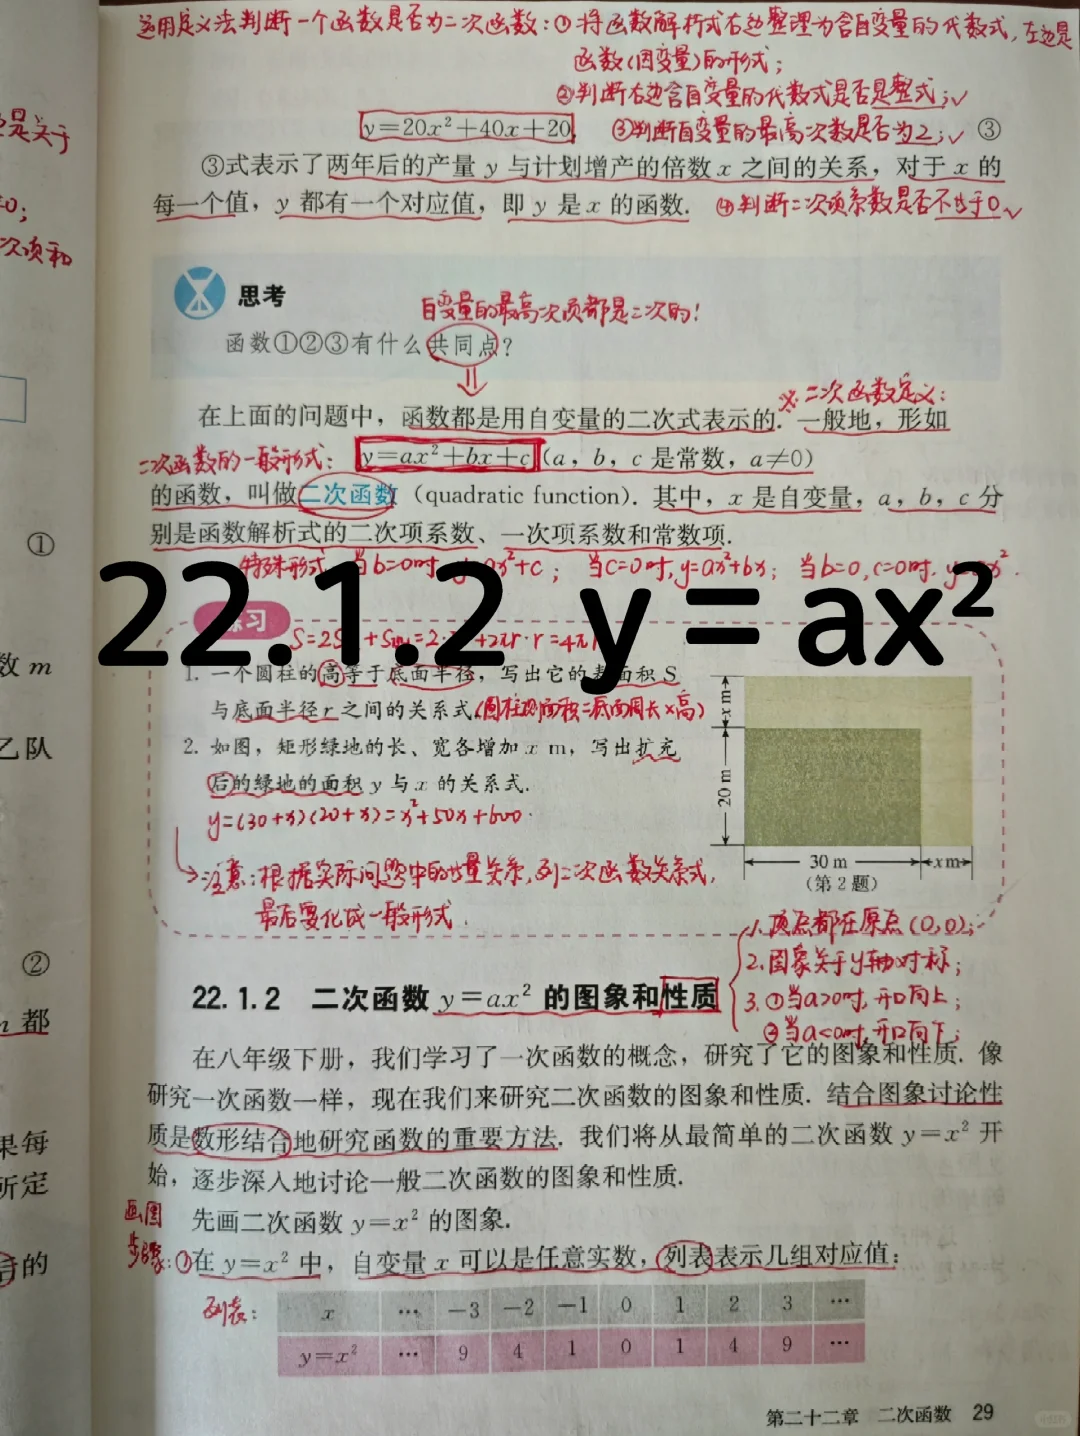 运用定义法判断一个函数是否为二次函数:①将函数解析式右边整理为含自变量的代数式,左边是
函数(因变量)的形式;
②判断右边含自变量的代数式是否是整式;✓
y=20x²+40x+20, ③判断自变量的最高次数是否为2;✓ ③
③式表示了两年后的产量 y 与计划增产的倍数 x 之间的关系,对于 x 的
每一个值,y 都有一个对应值,即 y 是 x 的函数. ④判断二次项系数是否不等于0✓
是关于
=0;
次项和
思考
自变量的最高次项都是二次的!
函数①②③有什么共同点?
※二次函数定义:
在上面的问题中,函数都是用自变量的二次式表示的. 一般地,形如
二次函数的一般形式: y=ax²+bx+c (a,b,c 是常数,a≠0)
的函数,叫做二次函数 (quadratic function). 其中,x 是自变量,a,b,c 分
别是函数解析式的二次项系数、一次项系数和常数项.
①
特殊形式 当b=0时,y=ax²+c; 当c=0时,y=ax²+bx; 当b=0,c=0时,y=ax².
22.1.2 y=ax²
练习
数 m
1. 一个圆柱的高等于底面半径,写出它的表面积 S
与底面半径 r 之间的关系式.(圆柱侧面积=底面周长×高)
2. 如图,矩形绿地的长、宽各增加 x m,写出扩充
后的绿地的面积 y 与 x 的关系式.
y=(30+x)(20+x)=x²+50x+600.
x m
20 m
30 m
x m
(第 2 题)
乙队
注意:根据实际问题中的数量关系,列二次函数关系式,
最后要化成一般形式.
②
都
1.顶点都在原点(0,0);
2.图象关于y轴对称;
3.①当a>0时,开口向上;
②当a<0时,开口向下;
22.1.2 二次函数 y=ax² 的图象和性质
在八年级下册,我们学习了一次函数的概念,研究了它的图象和性质. 像
研究一次函数一样,现在我们来研究二次函数的图象和性质. 结合图象讨论性
质是数形结合地研究函数的重要方法. 我们将从最简单的二次函数 y=x² 开
始,逐步深入地讨论一般二次函数的图象和性质.
果每
所定
的
先画二次函数 y=x² 的图象.
画图
步骤:①在 y=x² 中,自变量 x 可以是任意实数,列表表示几组对应值:
列表: x … −3 −2 −1 0 1 2 3 …
y=x² … 9 4 1 0 1 4 9 …
第二十二章 二次函数 29